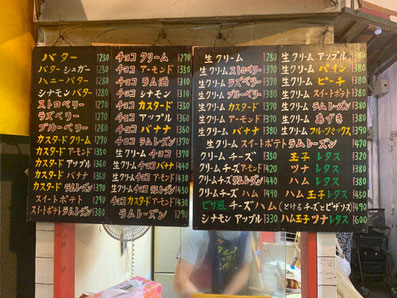 バター ￥230
バターシュガー ￥250
ハニーバター ￥280
シナモンバター ￥280
ストロベリー ￥270
ラズベリー ￥270
ブルーベリー ￥280
カスタードクリーム ￥290
カスタードアーモンド ￥330
カスタードアップル ￥360
カスタードバナナ ￥360
カスタードラムレーズン
スイートポテト
スイートポテトラムレーズン
チョコクリーム ￥270
チョコアーモンド ￥330
チョコラム酒 ￥310
チョコシナモン ￥310
チョコカスタード ￥330
チョコアップル ￥360
チョコバナナ ￥360
チョコラムレーズン
生クリームチョコ
生クリームチョコバナナ
生クリームチョコ
チョコカスタード
チョコカスタードアーモンド
ラムレーズン ￥290
生クリーム ￥280
生クリームストロベリー
生クリームラズベリー
生クリームブルーベリー
生クリームカスタード
生クリームアーモンド
生クリームバナナ ￥380
生クリームスイートポテトラムレーズン
クリームチーズ ￥350
クリームチーズアーモンド
クリームチーズラムレーズン
クリームチーズハム
ピザ風チーズハム(とけるチーズとピザソース) ￥490
シナモンアップル ￥330
生クリームアップル
生クリームパイン ￥380
生クリームピーチ ￥380
生クリームスイートポテト
生クリームラムレーズン
生クリームあずき ￥380
生クリームフルーツミックス
玉子レタス
ツナレタス
ハムレタス
ハム玉子レタス
ハム玉子ツナレタス ￥600